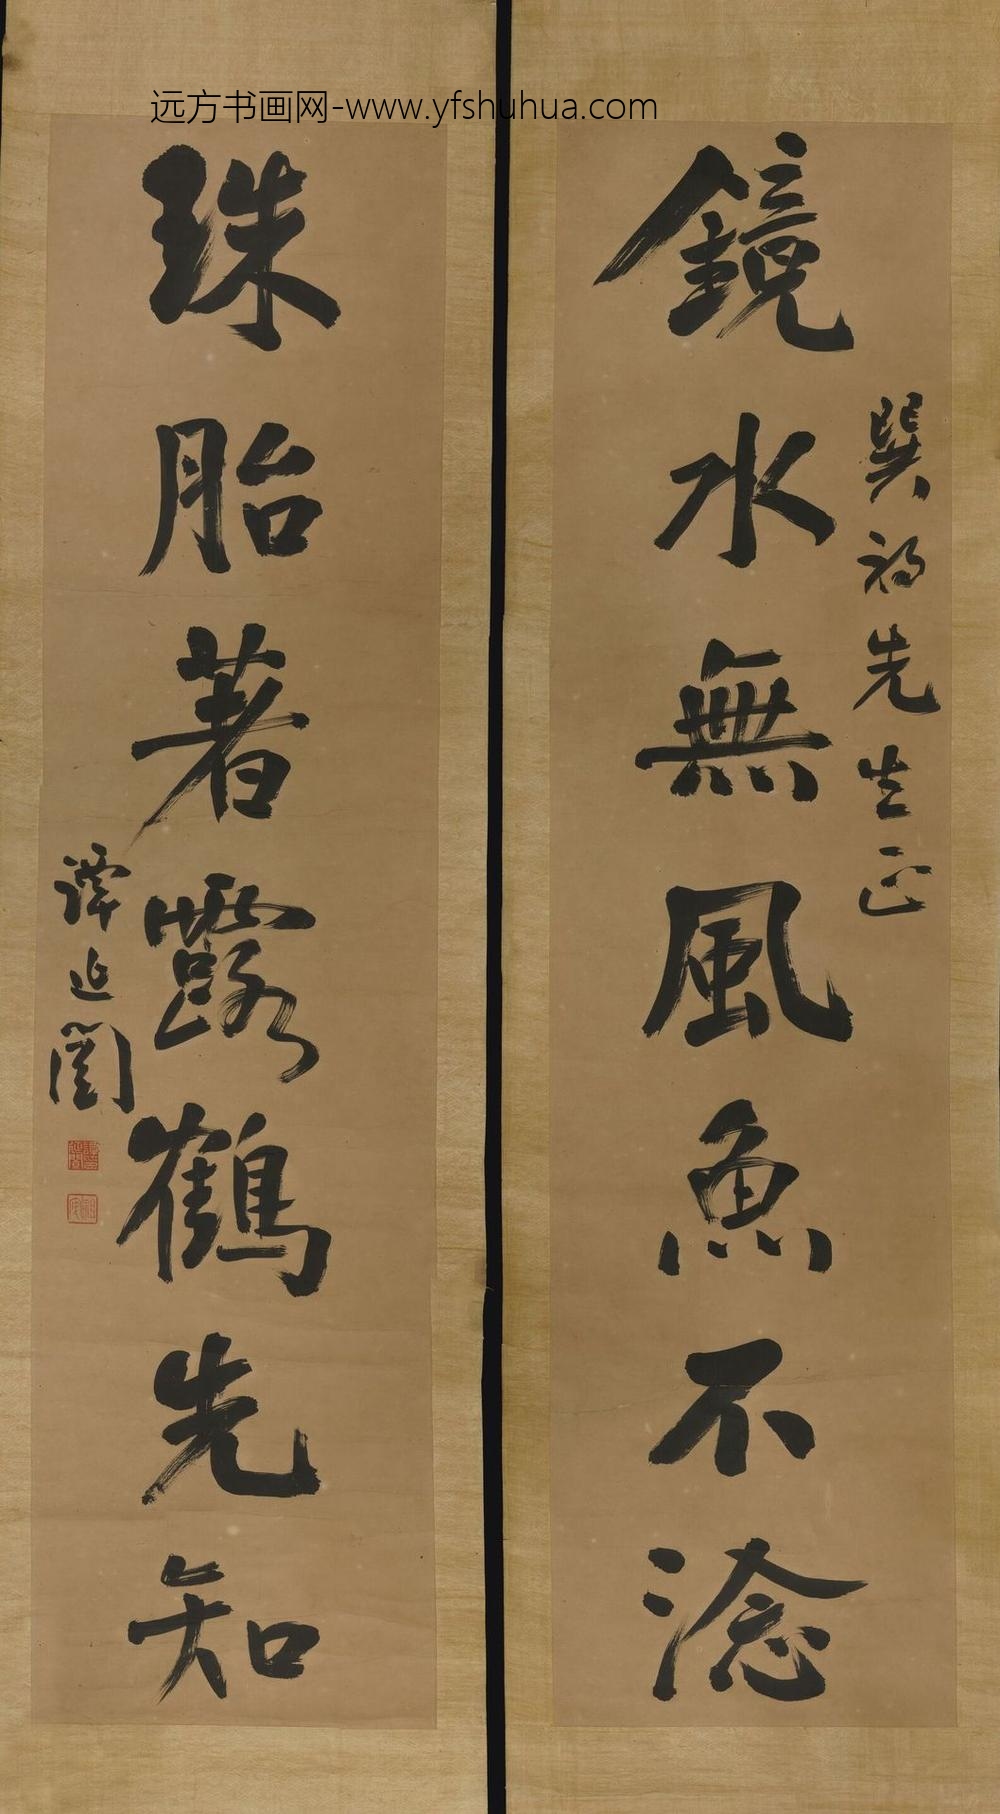 远方书画网-www.yfshuhua.com
鏡水無風魚不淰
巽初先生正
珠胎著露鶴先知
譚延闓